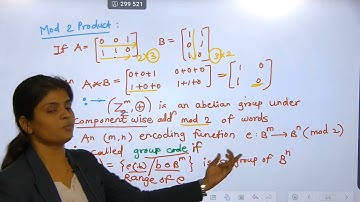 299 521
Mod 2 Product:
If A = [0 0 1 / 1 1 0] 2×3 B = [0 1 / 1 1 / 1 0] 3×2
A*B = [0+0+1 0+0+0 / 0+1+0 1+1+0] = [1 0 / 1 0]
(Z₂ᵐ, ⊕) is a abelian group under
component wise add mod 2 of words
An (m,n) encoding function e: Bᵐ → Bⁿ (mod 2)
called group code if
= {e(b) / b ∈ Bᵐ} is group of Bⁿ
Range of e